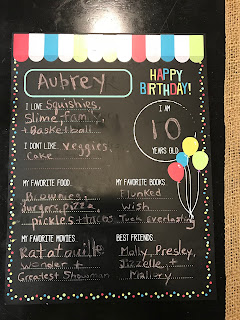 Aubrey
HAPPY
BIRTHDAY!
I LOVE Squishies,
Slime, family,
+ Basketball
I DON'T LIKE veggies,
Cake
I AM
10
YEARS OLD
MY FAVORITE FOOD
Brownies,
burgers, pizza,
pickles + tacos
MY FAVORITE BOOKS
Flunked
Wish
Tuck Everlasting
MY FAVORITE MOVIES
Ratatouille
Wonder +
Greatest Showman
BEST FRIENDS
Molly, Presley,
Jizzelle +
Mallory